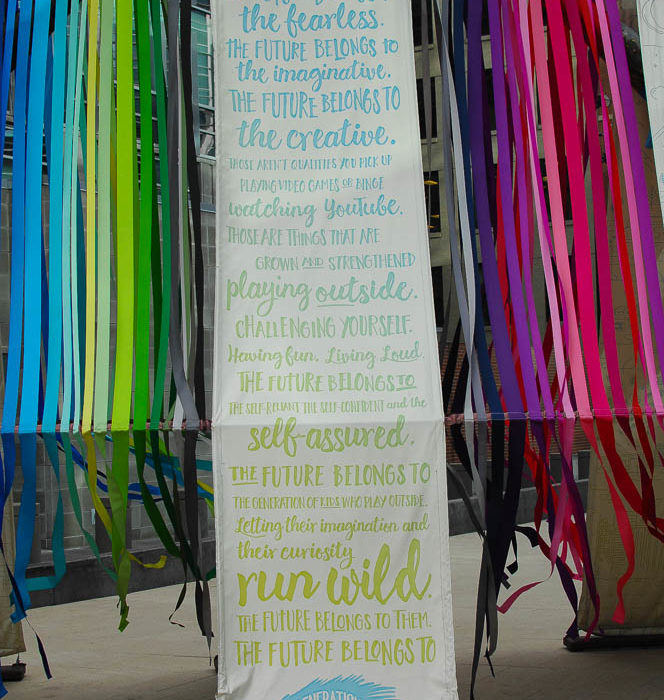 the fearless.
THE FUTURE BELONGS to
the imaginative.
THE FUTURE BELONGS TO
the creative.
THOSE AREN'T QUALITIES YOU PICK UP
PLAYING VIDEO GAMES OR BINGE
watching YouTube.
THOSE ARE THINGS THAT ARE
GROWN AND STRENGTHENED
playing outside.
CHALLENGING YOURSELF.
Having fun. Living Loud.
THE FUTURE BELONGS TO
THE SELF-RELIANT THE SELF-CONFIDENT and the
self-assured.
THE FUTURE BELONGS TO
THE GENERATION OF KIDS WHO PLAY OUTSIDE.
Letting their imagination and
their curiosity
run wild.
THE FUTURE BELONGS TO THEM.
THE FUTURE BELONGS TO
GENERATION